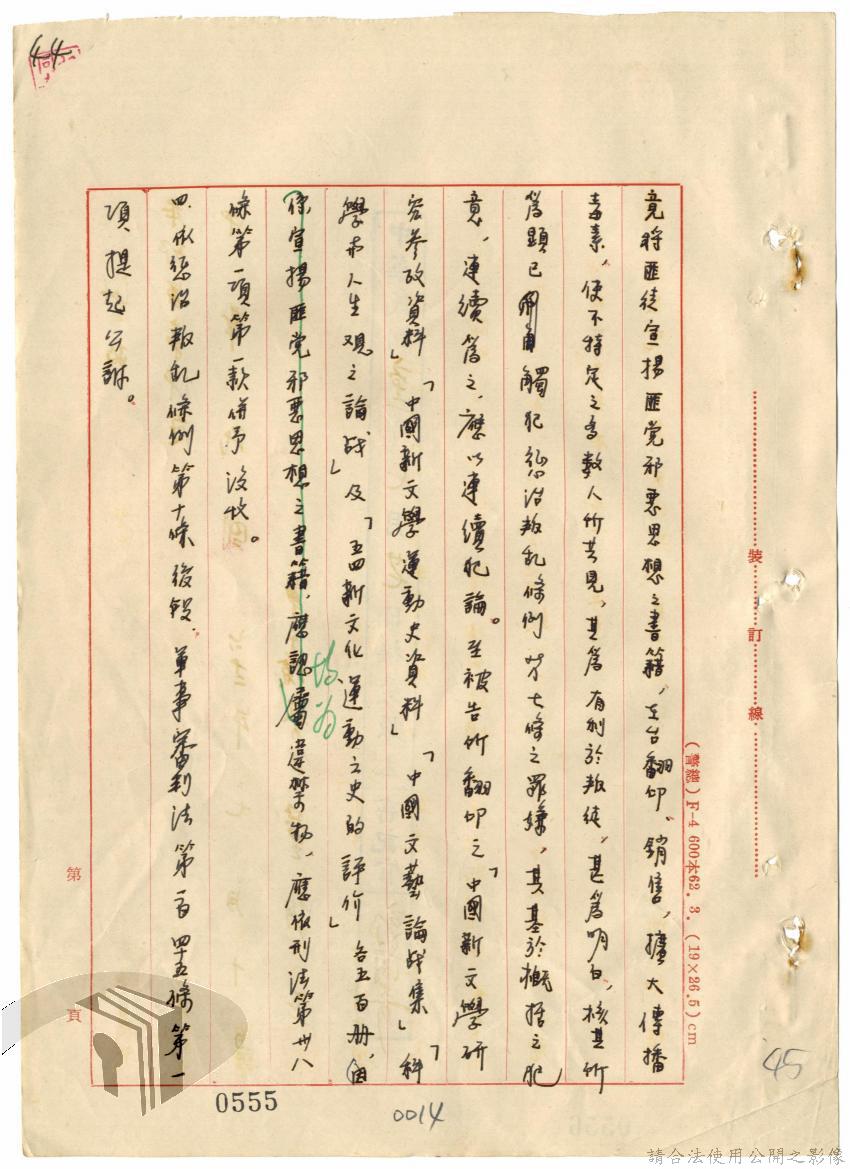 44
竟將匪徒宣揚匪党邪惡思想之書籍,在台翻印、銷售,擴大傳播
毒素,使不特定之多數人所共見,其為有利於叛徒,甚為明白,核其所
為顯已觸犯懲治叛亂條例第七條之罪嫌,其基於概括之犯
意,連續為之,應以連續犯論。至被告所翻印之「中國新文學研
究參攷資料」「中國新文學運動史資料」「中國文藝論战集」「科
學与人生观之論战」及「五四新文化運動之史的評价」各五百册,
係宣揚匪党邪惡思想之書籍,應認屬違禁物,應依刑法第卅八
均为
條第一項第一款併予沒收。
四、依懲治叛乱條例第十條後段、軍事審判法第一百四十五條第一
項提起公訴。
裝訂線
(警總)F-4 600本62.3.(19×26.5)cm
第 頁
45
0555
0014
請合法使用公開之影像